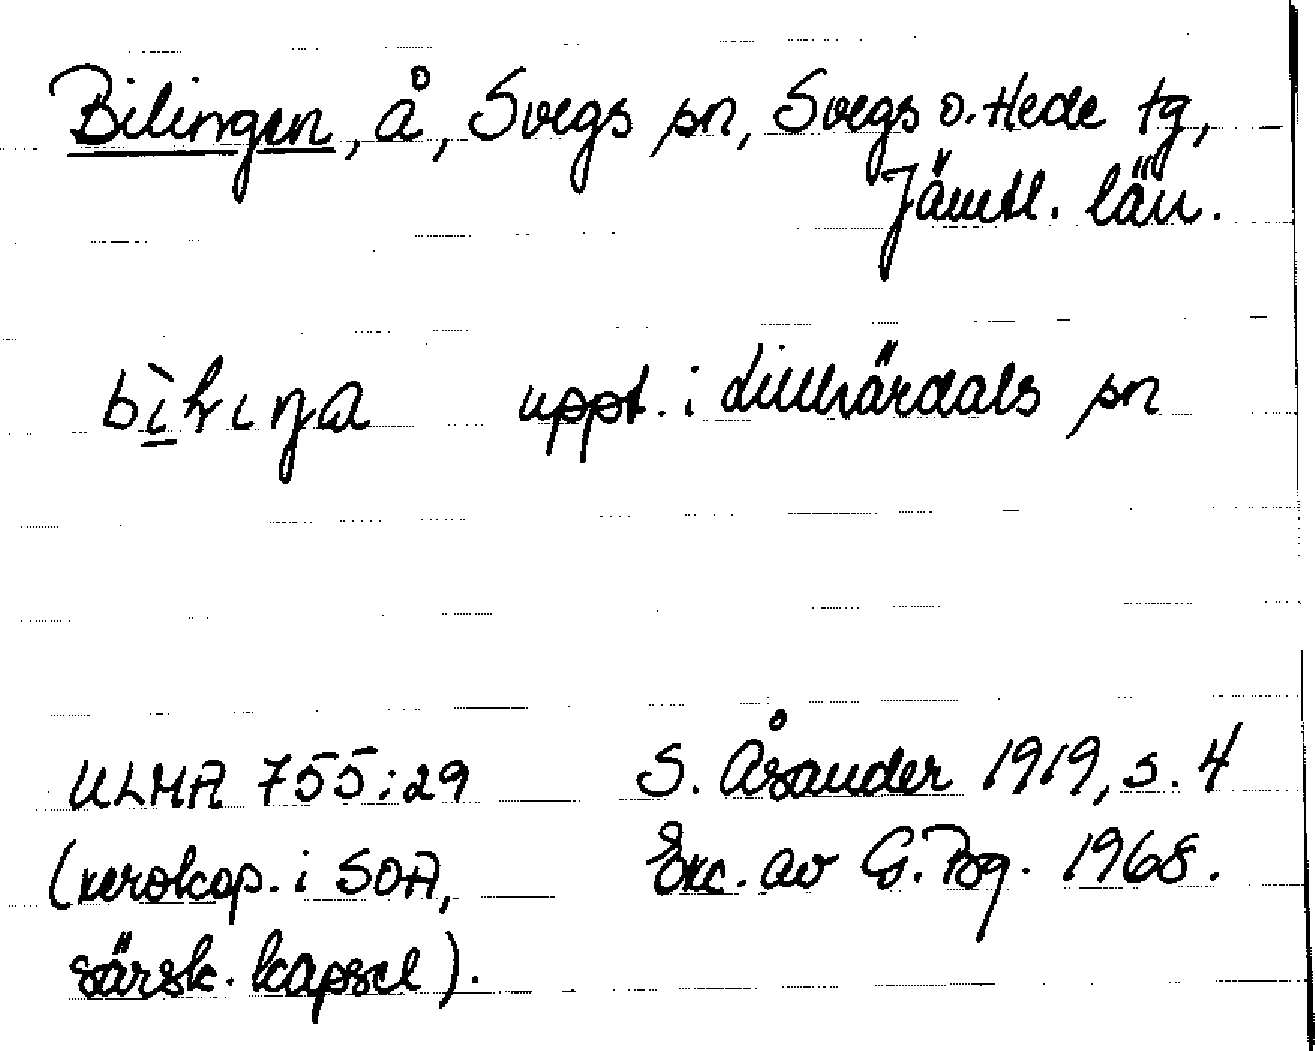 Bilingen, å, Svegs sn, Svegs o. Hede tg,
Jämtl. län.
uppt. i Lillhärdals sn
ULMA 755:29 S. Åsander 1919, s. 4
(xerokop. i SOA, Exc. av G. Bg. 1968.
särsk. kapsel).